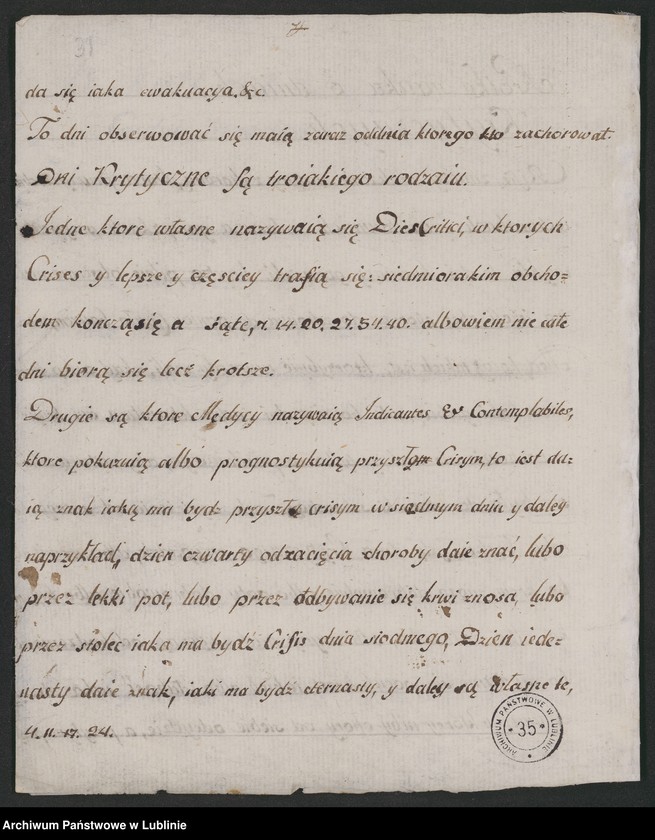 31
da się iaka ewakuacya. &c.
To dni obserwować się maią zaraz oddnia ktorego kto zachorował.
Dni Krytyczne są troiakiego rodzaiu.
Jedne ktore własne nazywaią się Dies Critici, w ktorych
Crises y lepsze y częsciey trafią się: siedmiorakim obcho=
dem kończąsię a są te, 7. 14. 20. 27. 34. 40. albowiem nie całe
dni biorą się lecż krotsze.
Drugie są ktore Mędycy nazywaią Indicantes & Contemplabiles,
ktore pokazuią albo prognostykuią przyszłąm Crisym, to iest da=
ią znak iaką ma bydz przyszła crisym w siedmym dniu y daley
naprzykład, dzien czwarty odzacięcia choroby daie znać, lubo
przez lekki pot, lubo przez odbywanie się krwi znosa, lubo
przez stolec iaka ma bydź Crisis dnia siodmego, Dzien iede=
nasty daie znak, iaki ma bydź czternasty, y daley są własne te,
4. 11. 17. 24.
ARCHIWUM PAŃSTWOWE W LUBLINIE
35
Archiwum Państwowe w Lublinie